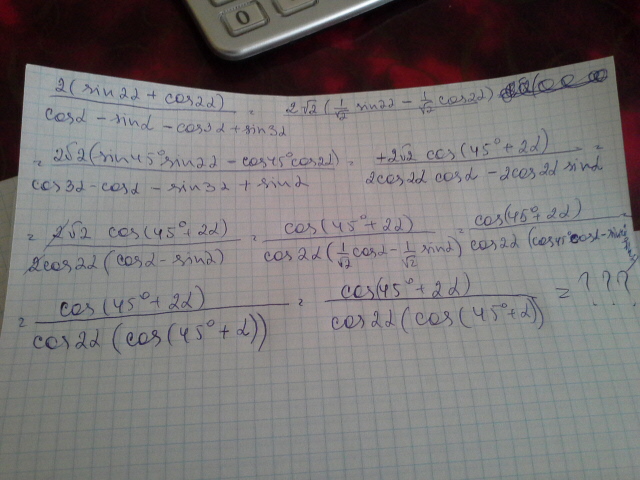 0
2(sin2α + cos2α) / (cosα - sinα - cos3α + sin3α) = 2√2(1/√2 sin2α - 1/√2 cos2α)
= 2√2(sin45° sin2α - cos45° cos2α) / (cos3α - cosα - sin3α + sinα) = +2√2 cos(45° + 2α) / (2cos2α cosα - 2cos2α sinα) =
= 2√2 cos(45° + 2α) / (2cos2α(cosα - sinα)) = cos(45° + 2α) / (cos2α(1/√2 cosα - 1/√2 sinα)) = cos(45° + 2α) / (cos2α(cos45° cosα - sin
= cos(45° + 2α) / (cos2α(cos(45° + α))) = cos(45° + 2α) / (cos2α(cos(45° + α))) = ???